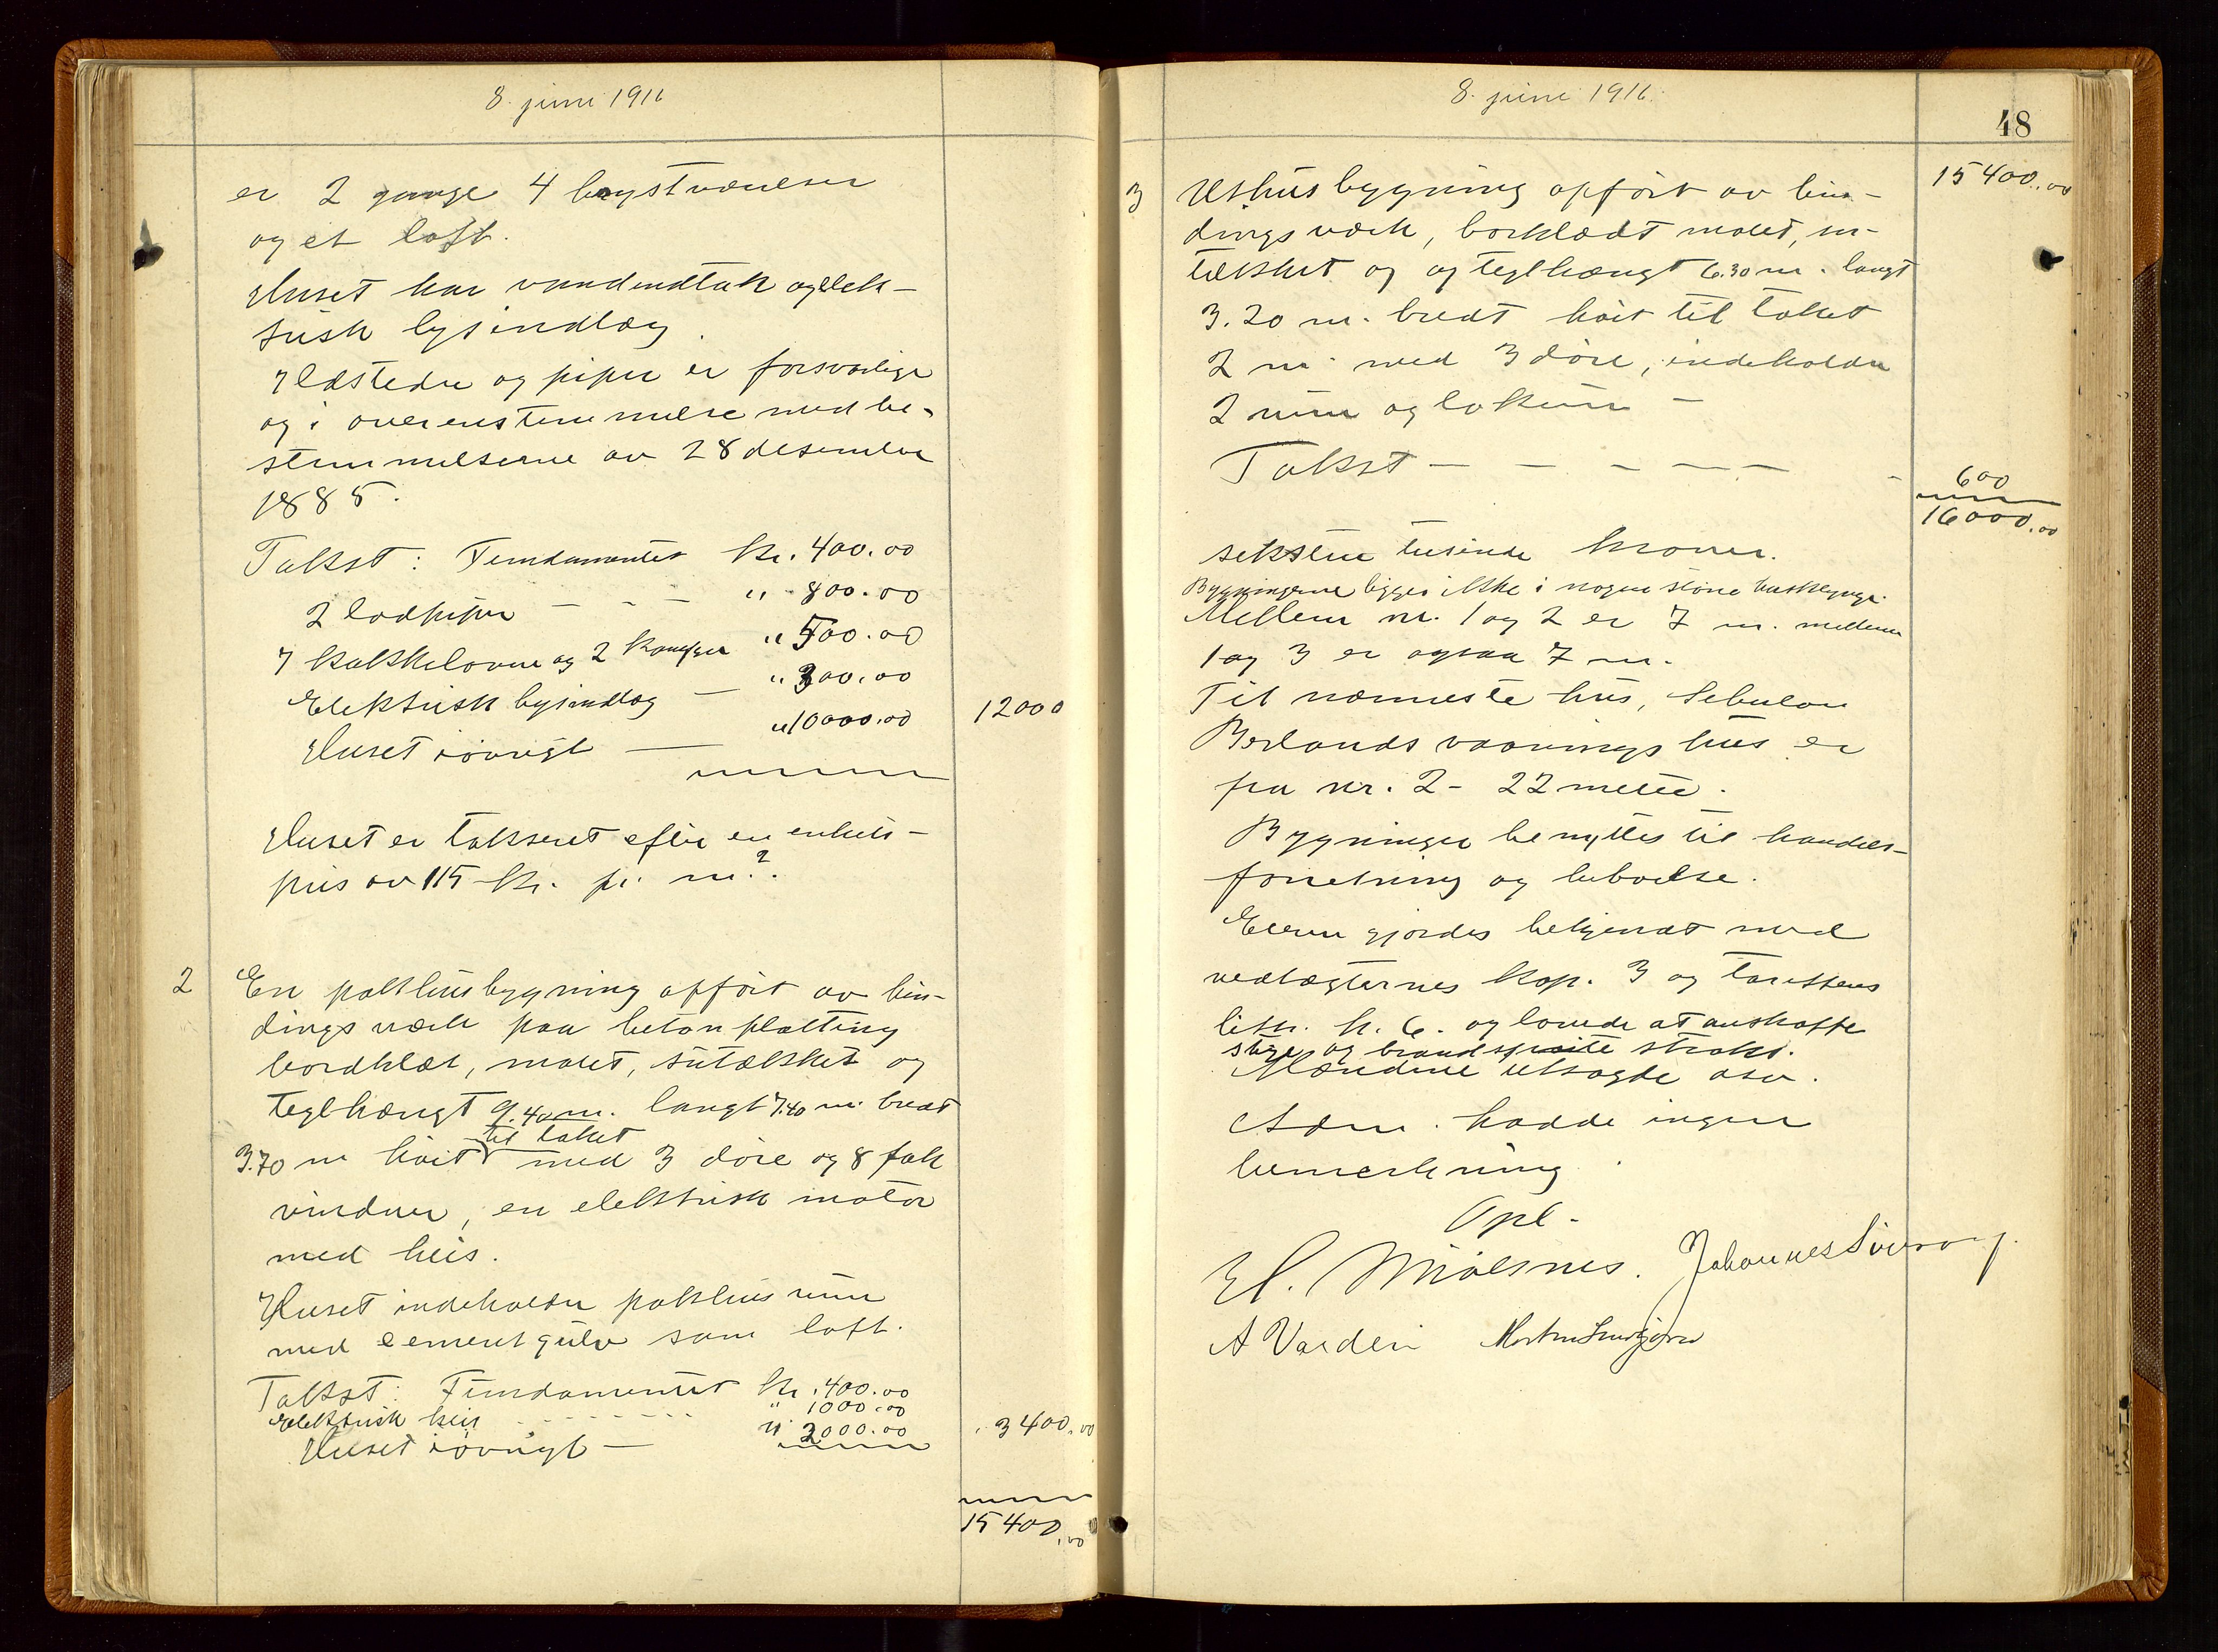 8. juni 1916
er 2 gange 4 bygstværelser
og et loft.
Huset har vandindtak og elek-
trisk lysindlæg.
Ildsteder og piper er forsvarlige
og i overenstemmelse med be-
stemmelserne av 28 desember
1885.
Takst: Fundamentet kr. 400.00
2 lodpiper - - - " 800.00
7 kakkelovne og 2 komfyrer " 500.00
Elektrisk lysindlæg - " 300.00
Huset iøvrigt - " 10000.00 12000
Huset er takseret efter en enhets-
pris av 115 kr. pr. m².
2 En pakhusbygning opført av bin-
dingsverk paa beton platting
bordklæt, malet, sutakket og
teglhængt 9.40 m. langt 7.40 m. bredt
til taket
3.70 m høit med 3 døre og 8 fak
vinduer, en elektrisk motor
med heis.
Huset indeholder pakhusrum
med cementgulv samt loft.
Takst: Fundamentet kr. 400.00
Elektrisk heis - - - - - " 1000.00
Huset iøvrigt - " 2000.00 3400.00
15400.00
8. juni 1916.
48
15400.00
3 Uthusbygning opført av bin-
dingsverk, bordklædt malet, su-
takket og og teglhængt 6.30 m. langt
3.20 m. bredt høit til taket
2 m. med 3 døre, indeholder
2 rum og lokum -
Takst - - - - - - 600
16000.00
seksten tusinde kroner.
Bygningerne ligger ikke i nogen større husklynge.
Mellem nr. 1 og 2 er 7 m. mellem
1 og 3 er ogsaa 7 m.
Til nærmeste hus, Sebulon
Berlands vaaningshus er
fra nr. 2 - 22 meter.
Bygninger benyttes til handels-
forretning og beboelse.
Eieren gjordes bekjendt med
vedtægternes kap. 3 og tariffens
litr. h. 6. og lovede at anskaffe
stige og brandsprøite straks.
Mændene utsagde osv.
Adm. hadde ingen
bemerkning.
Opl.
H. Mjølsnes. Johannes
A Varden